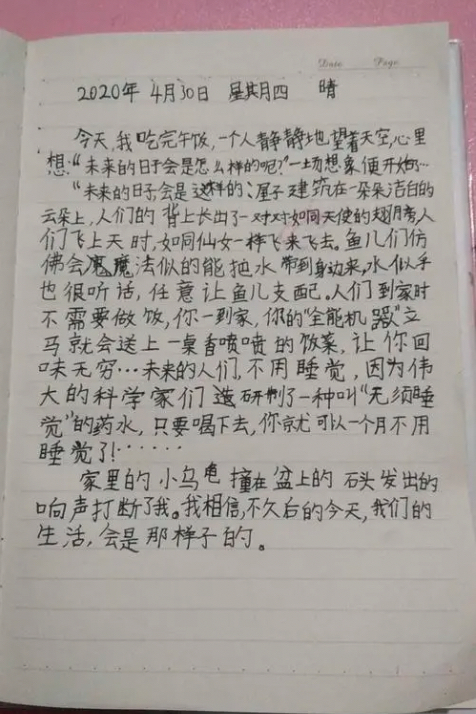 Date Page
2020年 4月30日 星期四 晴
今天,我吃完午饭,一个人静静地望着天空,心里
想:“未来的日子会是怎么样的呢?”一场想象便开始了…
“未来的日子会是这样的:屋子建筑在一朵朵洁白的
云朵上,人们的背上长出了一对对如同天使的翅膀,人
们飞上天时,如同仙女一样飞来飞去。鱼儿们仿
佛会魔法似的能把水带到身边来,水似乎
也很听话,任意让鱼儿支配。人们到家时
不需要做饭,你一到家,你的“全能机器”立
马就会送上一桌香喷喷的饭菜,让你回
味无穷…未来的人们,不用睡觉,因为伟
大的科学家们研制了一种叫“无须睡
觉”的药水,只要喝下去,你就可以一个月不用
睡觉了!……
家里的小乌龟撞在盆上的石头发出的
响声打断了我。我相信,不久后的今天,我们的
生活,会是那样子的。